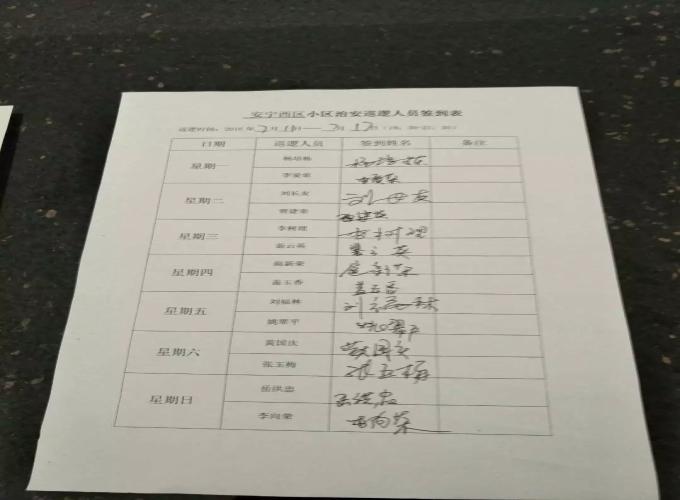 安宁西区小区治安巡逻人员签到表
巡逻时间：2018年2月11日——2月17日
日期 巡逻人员 签到姓名 备注
星期一 杨培栋
李爱荣
星期二 刘长友 刘长友
曹建荣
星期三 李树理 李树理
姜云英 姜云英
星期四 扈新荣 扈新荣
盖玉香 盖玉香
星期五 刘福林
姚翠平 姚翠平
星期六 黄国庆 黄国庆
张玉梅 张玉梅
星期日 岳洪忠 岳洪忠
李向荣 李向荣